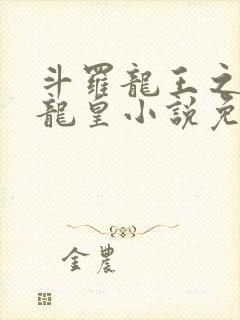 斗羅龍王之
龍皇小說免
金農